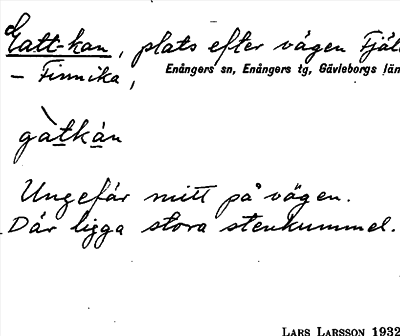 Gatt-kan, plats efter vägen Fjäl
- Finnika,
Enångers sn, Enångers tg, Gävleborgs län
gàtkán
Ungefär mitt på vägen.
Där ligga stora stenkummel.
LARS LARSSON 1932